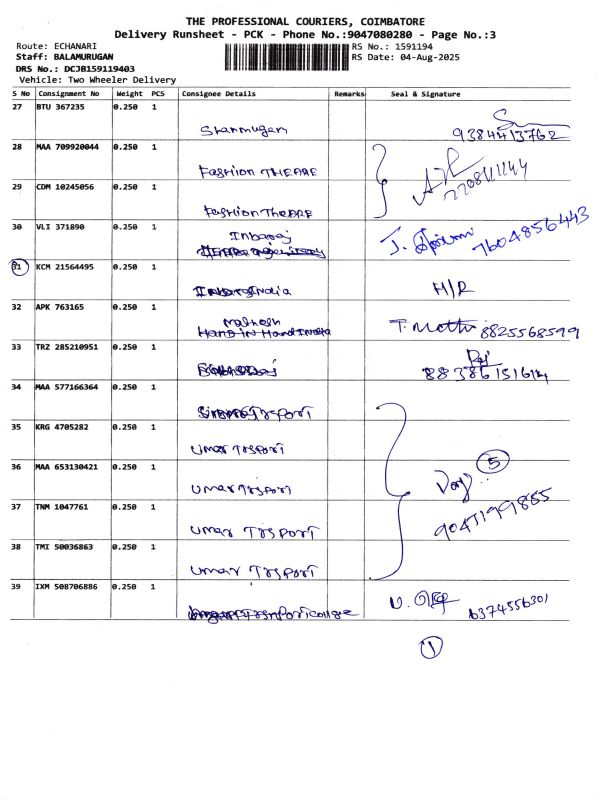 THE PROFESSIONAL COURIERS, COIMBATORE
Delivery Runsheet - PCK - Phone No.:9047080280 - Page No.:3
Route: ECHANARI RS No.: 1591194
Staff: BALAMURUGAN RS Date: 04-Aug-2025
DRS No.: DCJB159119403
Vehicle: Two Wheeler Delivery
S No Consignment No Weight PCS Consignee Details Remarks Seal & Signature
27 BTU 367235 0.250 1
Shanmugam 9384413762
28 MAA 709920044 0.250 1
Fashion THEARE
29 CDM 10245056 0.250 1
Fashion TheARE
30 VLI 371890 0.250 1
Inbaraj 7604856443
31 KCM 21564495 0.250 1
India H/R
32 APK 763165 0.250 1
Mahesh
HAND IN Hand India T. Mothi 8825568599
33 TRZ 285210951 0.250 1
8838615164
34 MAA 577166364 0.250 1
TRSPORT
35 KRG 4705282 0.250 1
Umar TRSPORT
36 MAA 653130421 0.250 1
Umar TRSPORT 5
37 TNM 1047761 0.250 1
Umar TRSPORT
38 TMI 50036863 0.250 1
Umar TRSPORT
39 IXM 508706886 0.250 1
College 6374556301
1